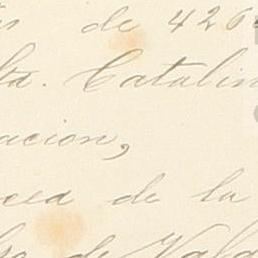 de 426
lta. Catalin
acion,
de la
de Val